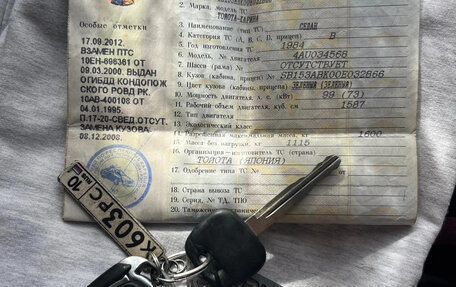 Особые отметки
17.09.2012.
ВЗАМЕН ПТС
10ЕН-698361 ОТ
09.03.2000. ВЫДАН
ОГИБДД КОНДОПОЖ
СКОГО РОВД РК.
10АВ-400108 ОТ
04.01.1995.
П.17-20-СВЕД.ОТСУТ.
ЗАМЕНА КУЗОВА.
08.12.2008.
2. Марка, модель ТС
ТОЙОТА-КАРИНА
3. Наименование (тип ТС) СЕДАН
4. Категория ТС (A, B, C, D, прицеп) B
5. Год изготовления ТС 1984
6. Модель, № двигателя 4AU034568
7. Шасси (рама) № ОТСУТСТВУЕТ
8. Кузов (кабина, прицеп) № SB153ABK00E032866
9. Цвет кузова (кабины, прицепа) ЗЕЛЕНЫЙ (ЗЕЛЕНЫЙ)
10. Мощность двигателя, л. с. (кВт) 99 (73)
11. Рабочий объем двигателя, куб. см 1587
12. Тип двигателя
13. Экологический класс
14. Разрешенная максимальная масса, кг 1600
15. Масса без нагрузки, кг 1115
16. Организация-изготовитель ТС (страна)
ТОЙОТА (ЯПОНИЯ)
17. Одобрение типа ТС №
18. Страна вывоза ТС
19. Серия, № ТД, ТПО
20. Таможенные
К603РС 10
RUS